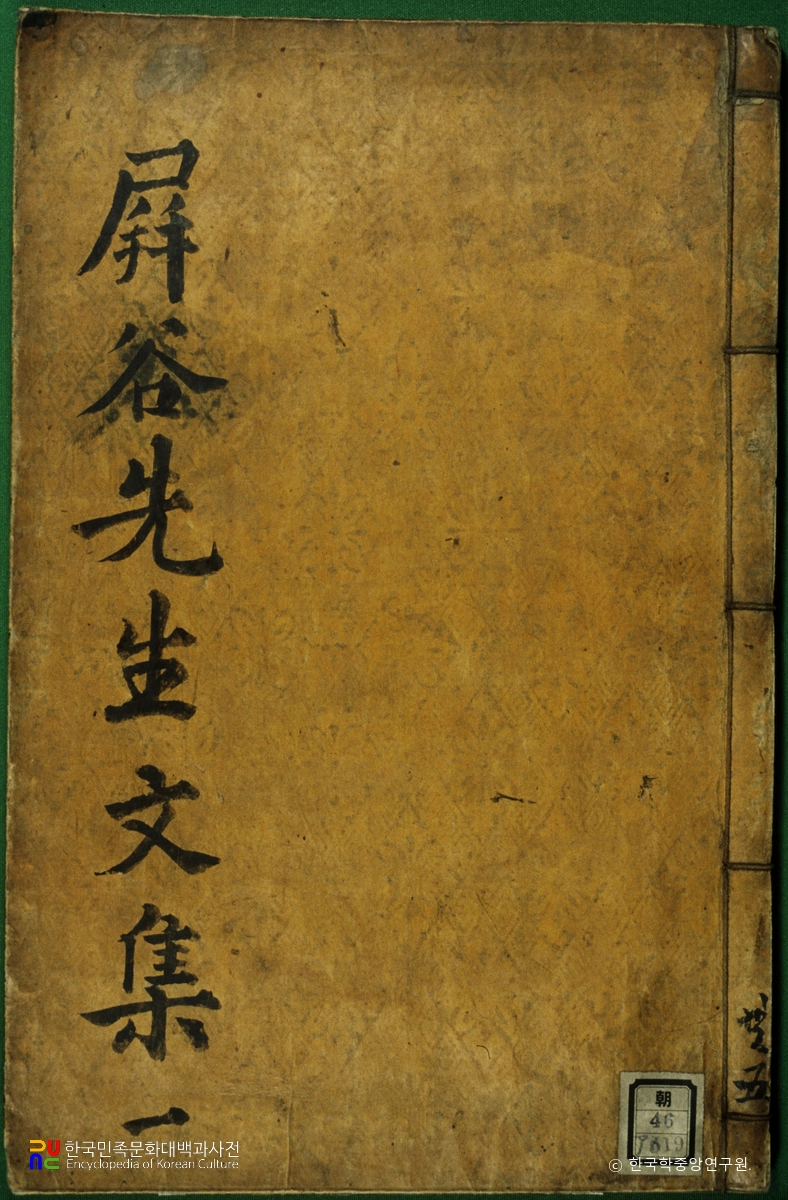 屛谷先生文集 一
共五
朝
46
한국민족문화대백과사전
Encyclopedia of Korean Culture
© 한국학중앙연구원